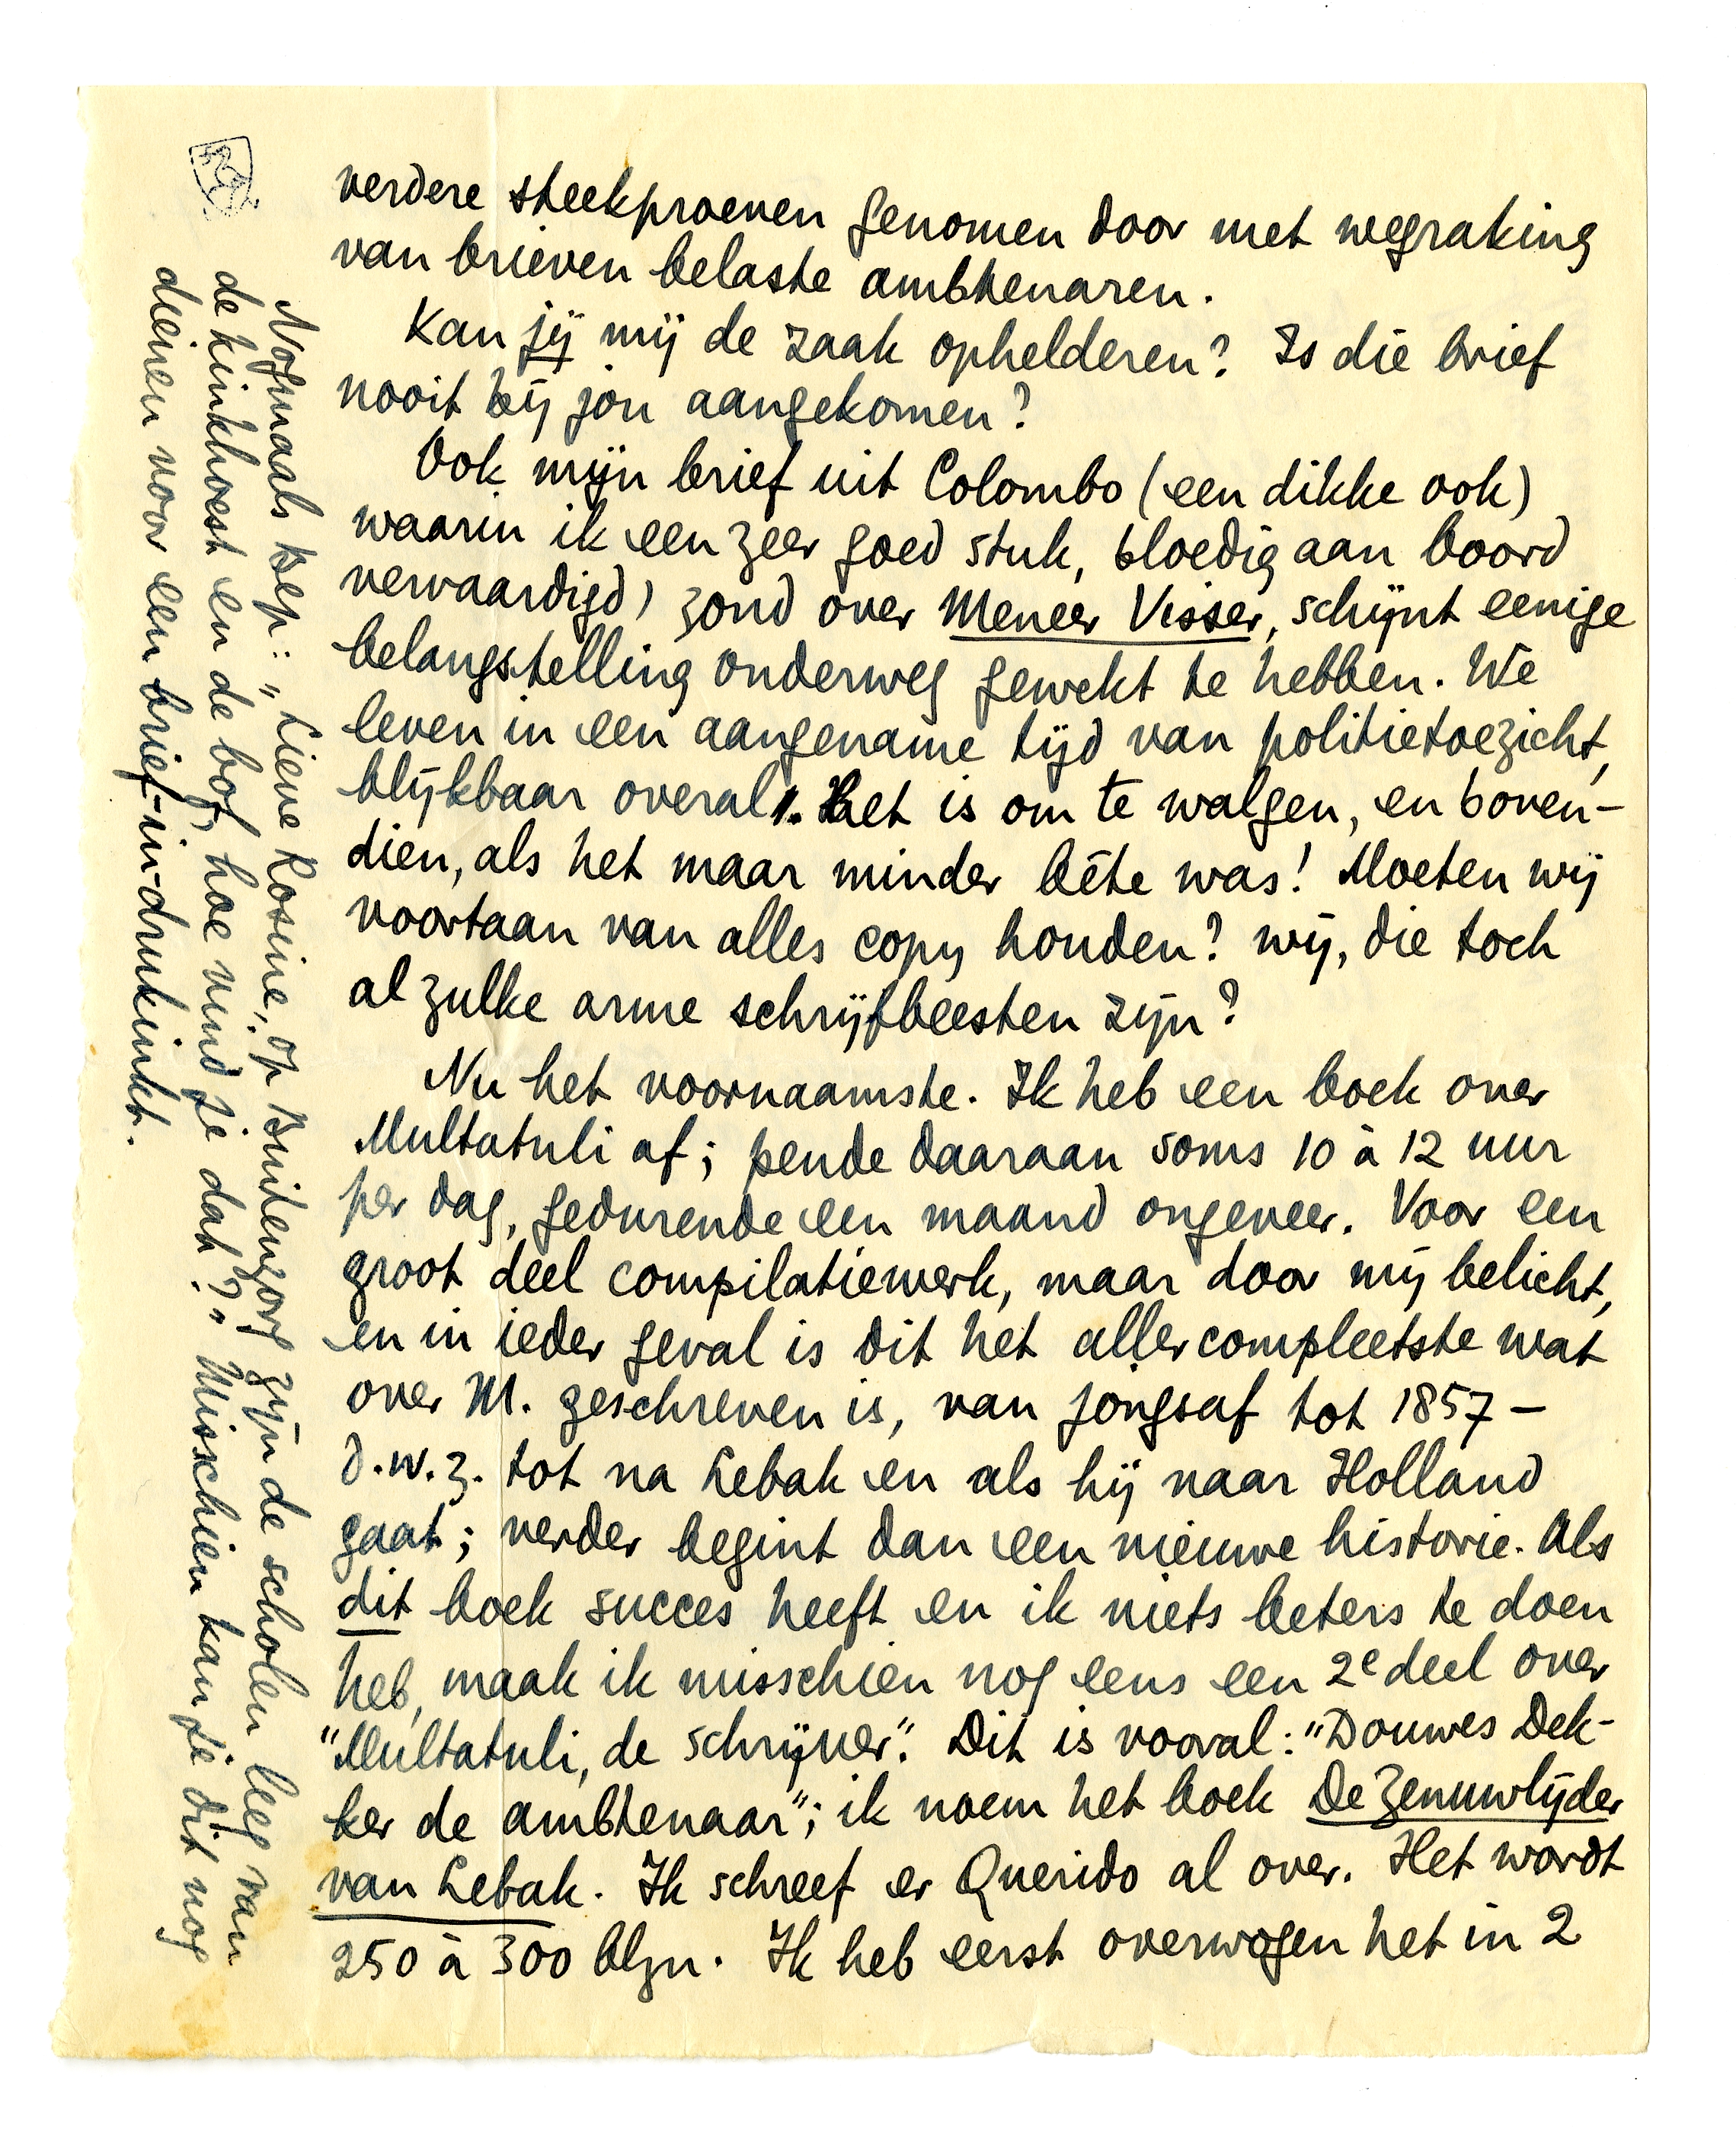 verdere steekproeven genomen door met wegraking
van brieven belaste ambtenaren.
Kan jij mij de zaak ophelderen? Is die brief
nooit bij jou aangekomen?
Ook mijn brief uit Colombo (een dikke ook)
waarin ik een zeer goed stuk, bloedig aan boord
vervaardigd) zond over Meneer Visser, schijnt eenige
belangstelling onderweg gewekt te hebben. We
leven in een aangename tijd van politietoezicht,
blijkbaar overal. Het is om te walgen, en boven-
dien, als het maar minder bête was! Moeten wij
voortaan van alles copy houden? wij, die toch
al zulke arme schrijfbeesten zijn?
Nu het voornaamste. Ik heb een boek over
Multatuli af; pende daaraan soms 10 à 12 uur
per dag, gedurende een maand ongeveer. Voor een
groot deel compilatiewerk, maar door mij belicht,
en in ieder geval is dit het allercompleetste wat
over M. geschreven is, van jongsaf tot 1857 –
d.w.z. tot na Lebak en als hij naar Holland
gaat; verder begint dan een nieuwe historie. Als
dit boek succes heeft en ik niets beters te doen
heb, maak ik misschien nog eens een 2e deel over
"Multatuli, de schrijver". Dit is vooral: "Douwes Dek-
ker de ambtenaar"; ik noem het boek De Zenuwlijder
van Lebak. Ik schreef er Querido al over. Het wordt
250 à 300 blzn. Ik heb eerst overwogen het in 2
Nogmaals Bep: "Lieve Rosine, op Buitenzorg zijn de scholen leeg van
de kinkhoest en de bof, hoe vind je dat?" Misschien kan je dit nog
dienen voor een brief-in-drukinkt.